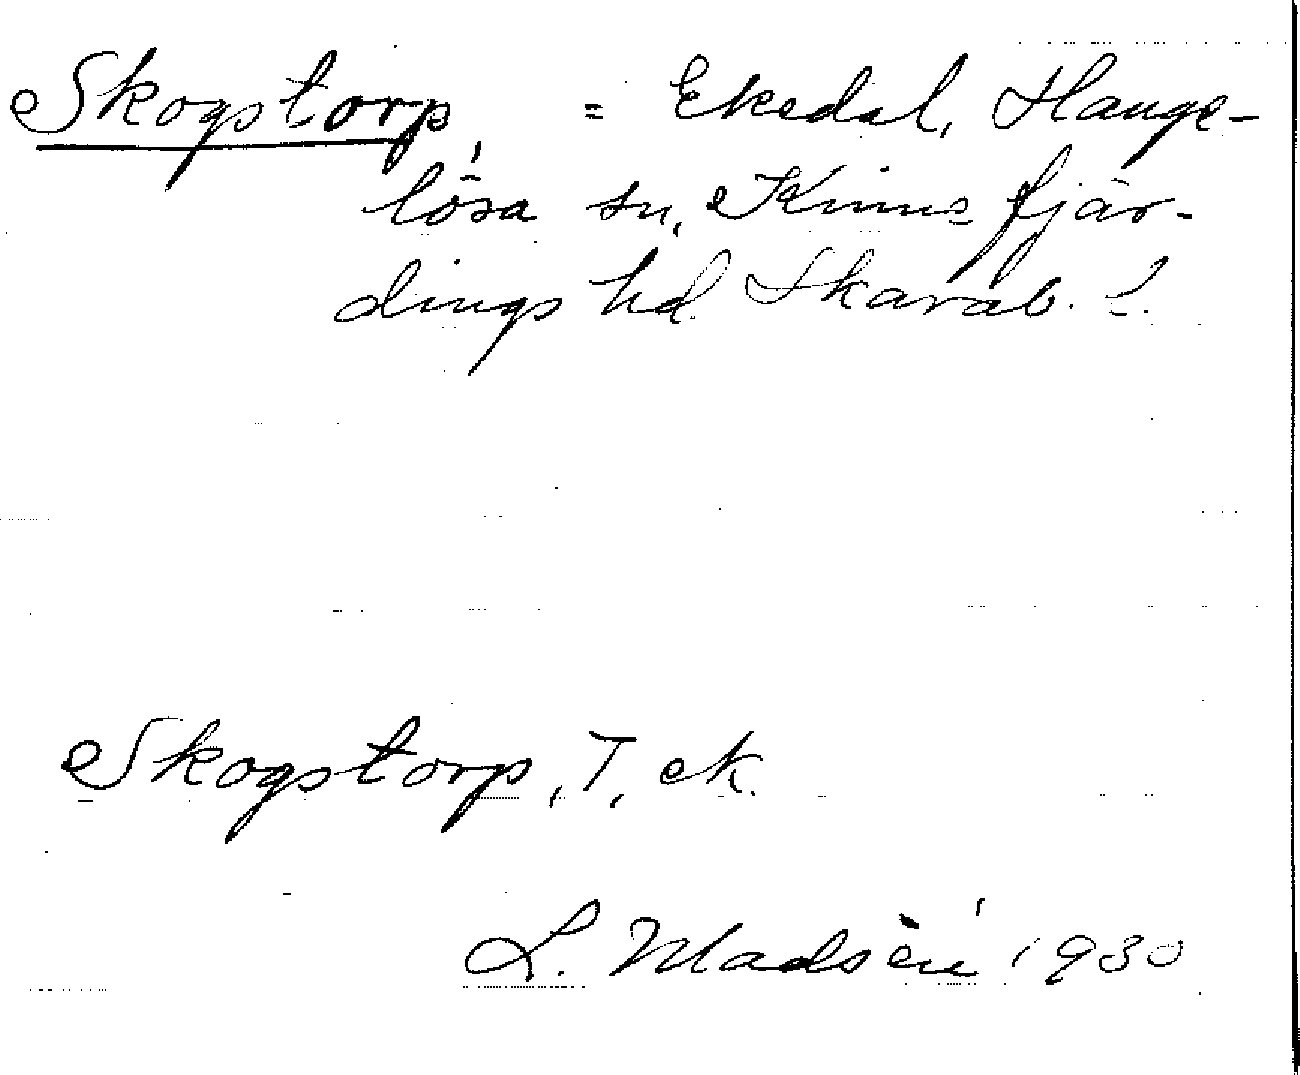 Skogstorp = Ekedal, Hange-
lösa sn, Kinne fjär-
dings hd. Skarab. l.
Skogstorp, T, ek.
L. Madsén 1930